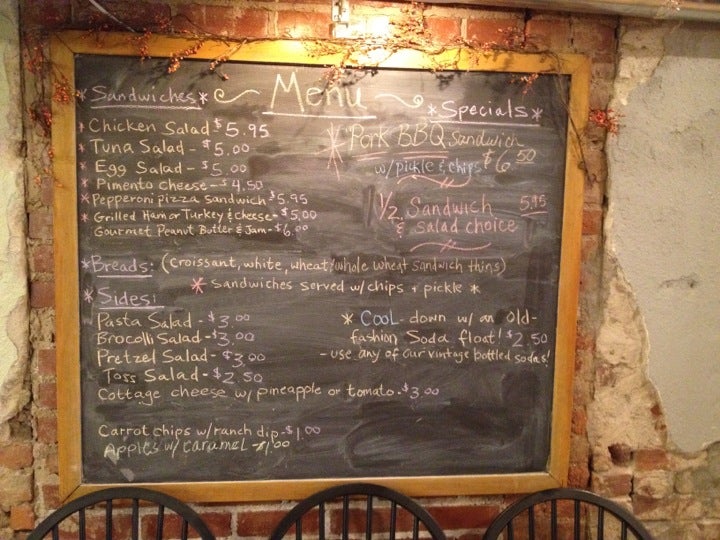 Menu
*Sandwiches*
* Chicken Salad $5.95
* Tuna Salad - $5.00
* Egg Salad - $5.00
* Pimento Cheese - $4.50
* Pepperoni pizza sandwich $5.95
* Grilled Ham or Turkey & cheese - $5.00
Gourmet Peanut Butter & Jam - $6.00
*Specials*
* Pork BBQ Sandwich
w/ pickle & chips $6.50
1/2 Sandwich 5.95
& salad choice
*Breads: (croissant, white, wheat/whole wheat sandwich thins)
* Sandwiches served w/ chips + pickle *
*Sides:
Pasta Salad - $3.00
Brocolli Salad - $3.00
Pretzel Salad - $3.00
Toss Salad - $2.50
Cottage cheese w/ pineapple or tomato - $3.00
Carrot chips w/ ranch dip - $1.00
Apples w/ caramel - $1.00
* COOL - down w/ an Old-
fashion Soda float! $2.50
- use any of our vintage bottled sodas!